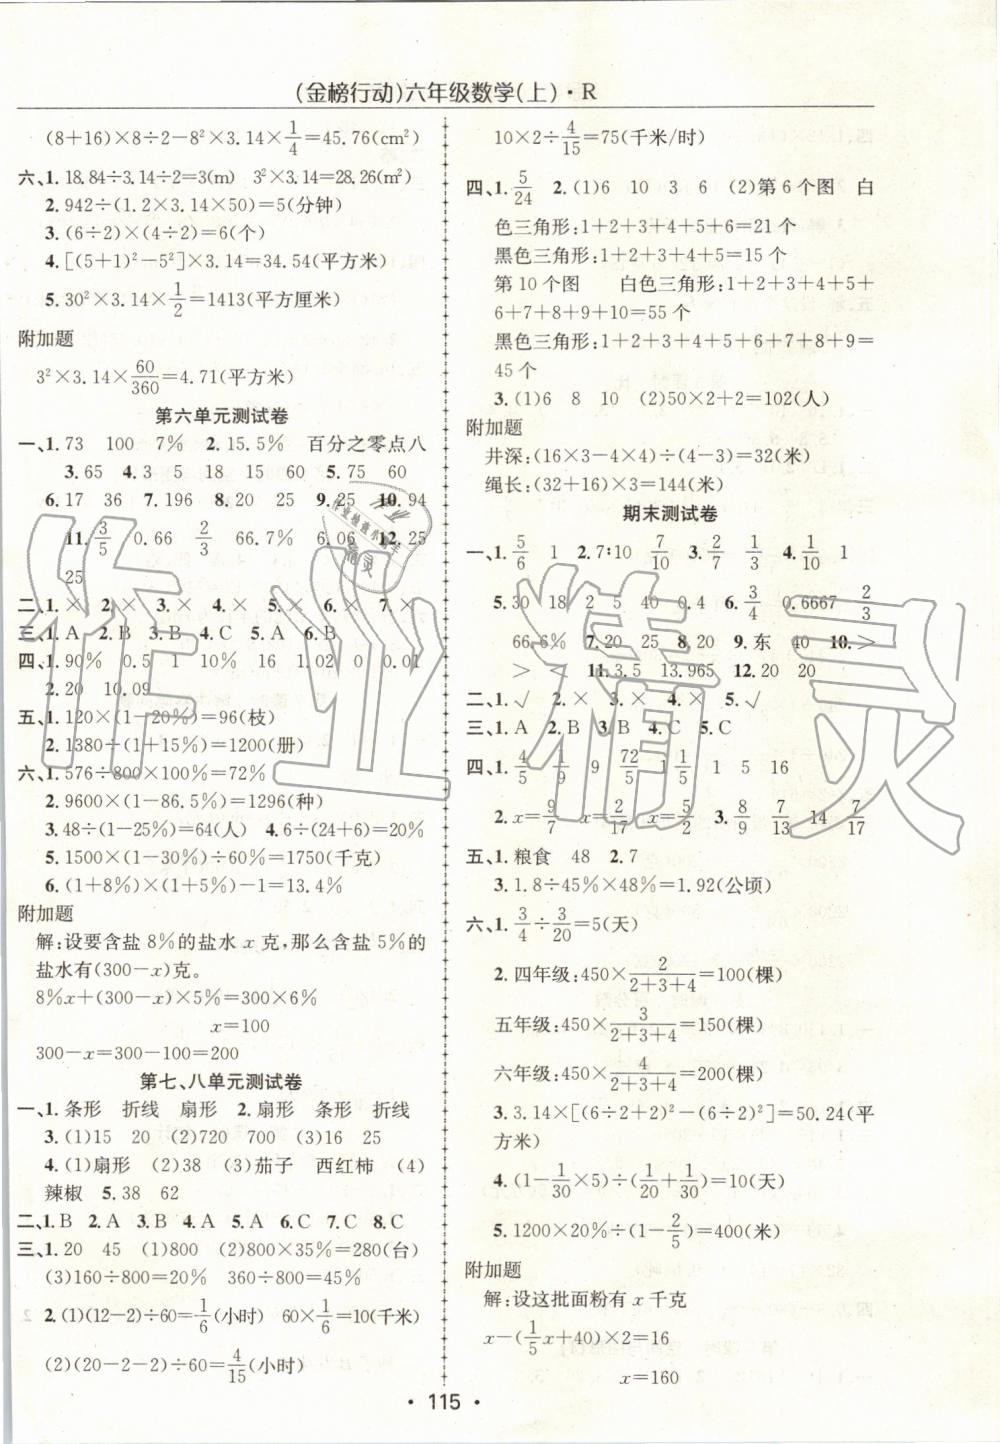 (金榜行动)六年级数学(上)·R
(8+16)×8÷2-8²×3.14×1/4=45.76(cm²)
六、1. 18.84÷3.14÷2=3(m) 3²×3.14=28.26(m²)
2. 942÷(1.2×3.14×50)=5(分钟)
3. (6÷2)×(4÷2)=6(个)
4. [(5+1)²-5²]×3.14=34.54(平方米)
5. 30²×3.14×1/2=1413(平方厘米)
附加题
3²×3.14×60/360=4.71(平方米)
第六单元测试卷
一、1. 73 100 7% 2. 15.5% 百分之零点八
3. 65 4. 3 5 18 15 60 5. 75 60
6. 17 36 7. 196 8. 20 25 9. 25 10. 94
11. 3/5 0.66 2/3 66.7% 6.06 12. 25
25
二、1. × 2. × 3. × 4. × 5. × 6. × 7. ×
三、1. A 2. B 3. B 4. C 5. A 6. B
四、1. 90% 0.5 1 10% 16 1.02 0 0.01
2. 20 10.09
五、1. 120×(1-20%)=96(枝)
2. 1380÷(1+15%)=1200(册)
六、1. 576÷800×100%=72%
2. 9600×(1-86.5%)=1296(种)
3. 48÷(1-25%)=64(人) 4. 6÷(24+6)=20%
5. 1500×(1-30%)÷60%=1750(千克)
6. (1+8%)×(1+5%)-1=13.4%
附加题
解:设要含盐8%的盐水x克,那么含盐5%的
盐水有(300-x)克。
8%x+(300-x)×5%=300×6%
x=100
300-x=300-100=200
第七、八单元测试卷
一、1. 条形 折线 扇形 2. 扇形 条形 折线
3. (1)15 20 (2)720 700 (3)16 25
4. (1)扇形 (2)38 (3)茄子 西红柿 (4)
辣椒 5. 38 62
二、1. B 2. A 3. B 4. A 5. A 6. C 7. C 8. C
三、1. 20 45 (1)800 (2)800×35%=280(台)
(3)160÷800=20% 360÷800=45%
2. (1)(12-2)÷60=1/6(小时) 60×1/6=10(千米)
(2)(20-2-2)÷60=4/15(小时)
10×2÷4/15=75(千米/时)
四、1. 5/24 2. (1)6 10 3 6 (2)第6个图 白
色三角形:1+2+3+4+5+6=21个
黑色三角形:1+2+3+4+5=15个
第10个图 白色三角形:1+2+3+4+5+
6+7+8+9+10=55个
黑色三角形:1+2+3+4+5+6+7+8+9=
45个
3. (1)6 8 10 (2)50×2+2=102(人)
附加题
井深:(16×3-4×4)÷(4-3)=32(米)
绳长:(32+16)×3=144(米)
期末测试卷
一、1. 5/6 1 2. 7:10 7/10 3. 2/7 1/3 4. 1/10 1
5. 30 18 2 5 40 0.4 6. 3/4 0.6667 2/3
66.6% 7. 20 25 8. 20 9. 东 40 10. >
> < 11. 3.5 13.965 12. 20 20
二、1. √ 2. × 3. × 4. × 5. √
三、1. A 2. B 3. B 4. C 5. C
四、1. 4/5 1/9 9 72/5 1/5 1 5 16
2. x=9/7 x=2/17 x=5/2 3. 8/9 7/13 14 7/17
五、1. 粮食 48 2. 7
3. 1.8÷45%×48%=1.92(公顷)
六、1. 3/4÷3/20=5(天)
2. 四年级:450×2/(2+3+4)=100(棵)
五年级:450×3/(2+3+4)=150(棵)
六年级:450×4/(2+3+4)=200(棵)
3. 3.14×[(6÷2+2)²-(6÷2)²]=50.24(平
方米)
4. (1-1/30×5)÷(1/20+1/30)=10(天)
5. 1200×20%÷(1-2/5)=400(米)
附加题
解:设这批面粉有x千克
x-(1/5x+40)×2=16
x=160
·115·
作业精灵